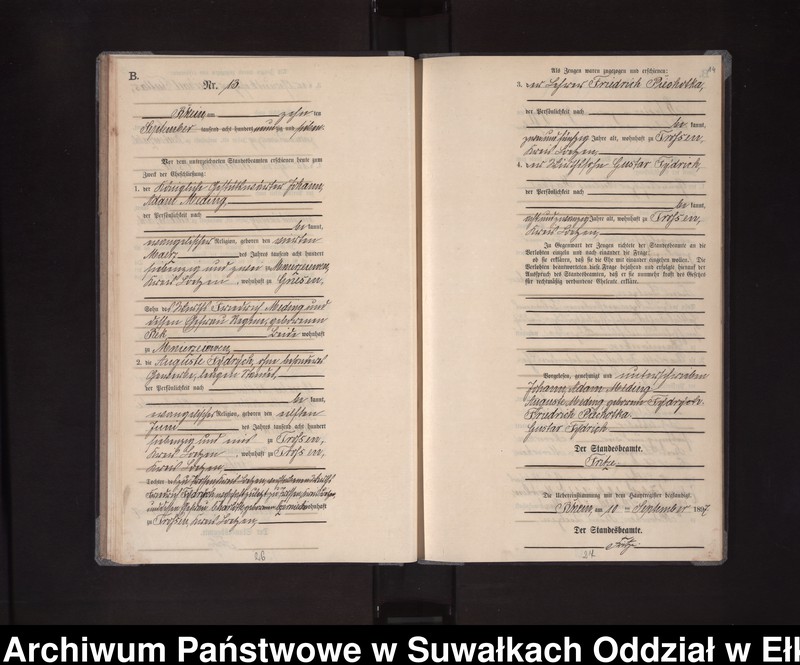 B.
Nr. 13.
Rhein, am zehnten
September tausend acht hundert neunzig und sieben
Vor dem unterzeichneten Standesbeamten erschienen heute zum
Zweck der Eheschließung:
1. der Königliche Johann
Adam Meding
der Persönlichkeit nach
be kannt,
evangelischer Religion, geboren den
März des Jahres tausend acht hundert
siebenzig und zu
Kreis Loetzen, wohnhaft zu
Sohn des Friedrich Meding und
dessen Ehefrau Regine, geborenen
Beide wohnhaft
zu
2. die Auguste Fydrich, ohne besonderes
Gewerbe,
der Persönlichkeit nach
be kannt,
evangelischer Religion, geboren den elften
Juni des Jahres tausend acht hundert
siebenzig und zu Trossen,
Kreis Loetzen, wohnhaft zu Trossen,
Kreis Loetzen,
Tochter
Fydrich
Charlotte geborenen wohnhaft
zu Trossen, Kreis Loetzen
26
Als Zeugen waren zugezogen und erschienen:
3. der Lehrer Friedrich Pacholka,
der Persönlichkeit nach
be kannt,
zweiundfünfzig Jahre alt, wohnhaft zu Trossen,
Kreis Loetzen
4. der Wirthssohn Gustav Fydrich,
der Persönlichkeit nach
be kannt,
achtundzwanzig Jahre alt, wohnhaft zu Trossen,
Kreis Loetzen
In Gegenwart der Zeugen richtete der Standesbeamte an die
Verlobten einzeln und nach einander die Frage:
ob sie erklären, daß sie die Ehe mit einander eingehen wollen. Die
Verlobten beantworteten diese Frage bejahend und erfolgte hierauf der
Ausspruch des Standesbeamten, daß er sie nunmehr kraft des Gesetzes
für rechtmäßig verbundene Eheleute erkläre.
Vorgelesen, genehmigt und unterschrieben
Johann Adam Meding
Auguste Meding geborene Fydrich
Friedrich Pacholka
Gustav Fydrich
Der Standesbeamte.
Fritze.
Die Uebereinstimmung mit dem Hauptregister beglaubigt.
Rhein, am 10 ten September 1897
Der Standesbeamte.
Fritze.
27
Archiwum Państwowe w Suwałkach Oddział w Eł